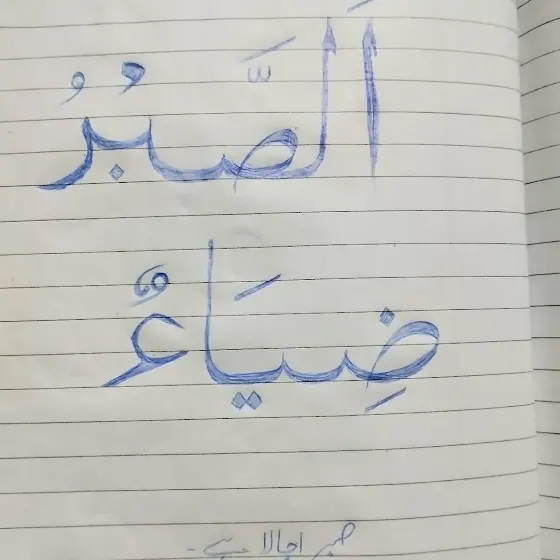 اَلصَّبْرُ
ضِيَاءٌ
صبر اجالا ہے۔